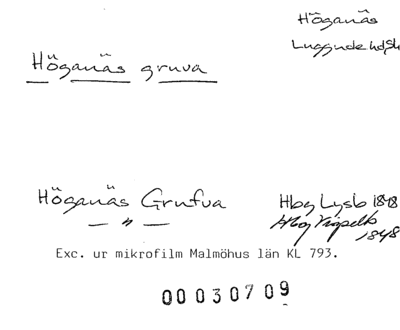 Höganäs
Luggude hd, Sk
Höganäs gruva
Höganäs Grufva
Hbg Lysb 1848
— " —
Hbg Vigselb
1848
Exc. ur mikrofilm Malmöhus län KL 793.
00 030709